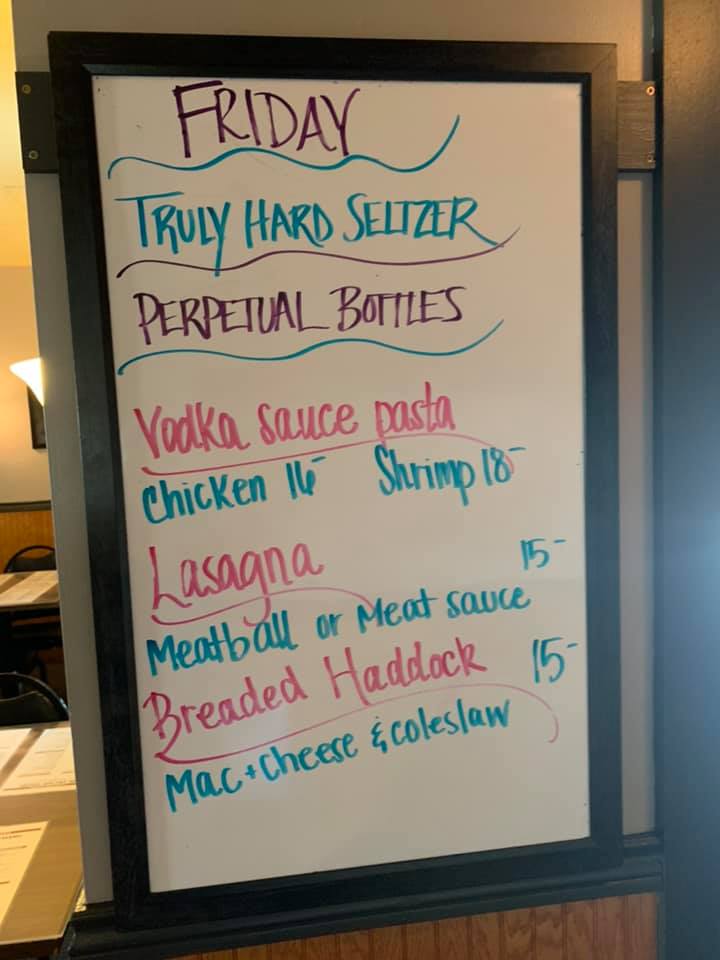 FRIDAY
TRULY HARD SELTZER
PERPETUAL BOTTLES
Vodka sauce pasta
Chicken 16- Shrimp 18-
Lasagna 15-
Meatball or Meat sauce
Breaded Haddock 15-
Mac + Cheese & coleslaw